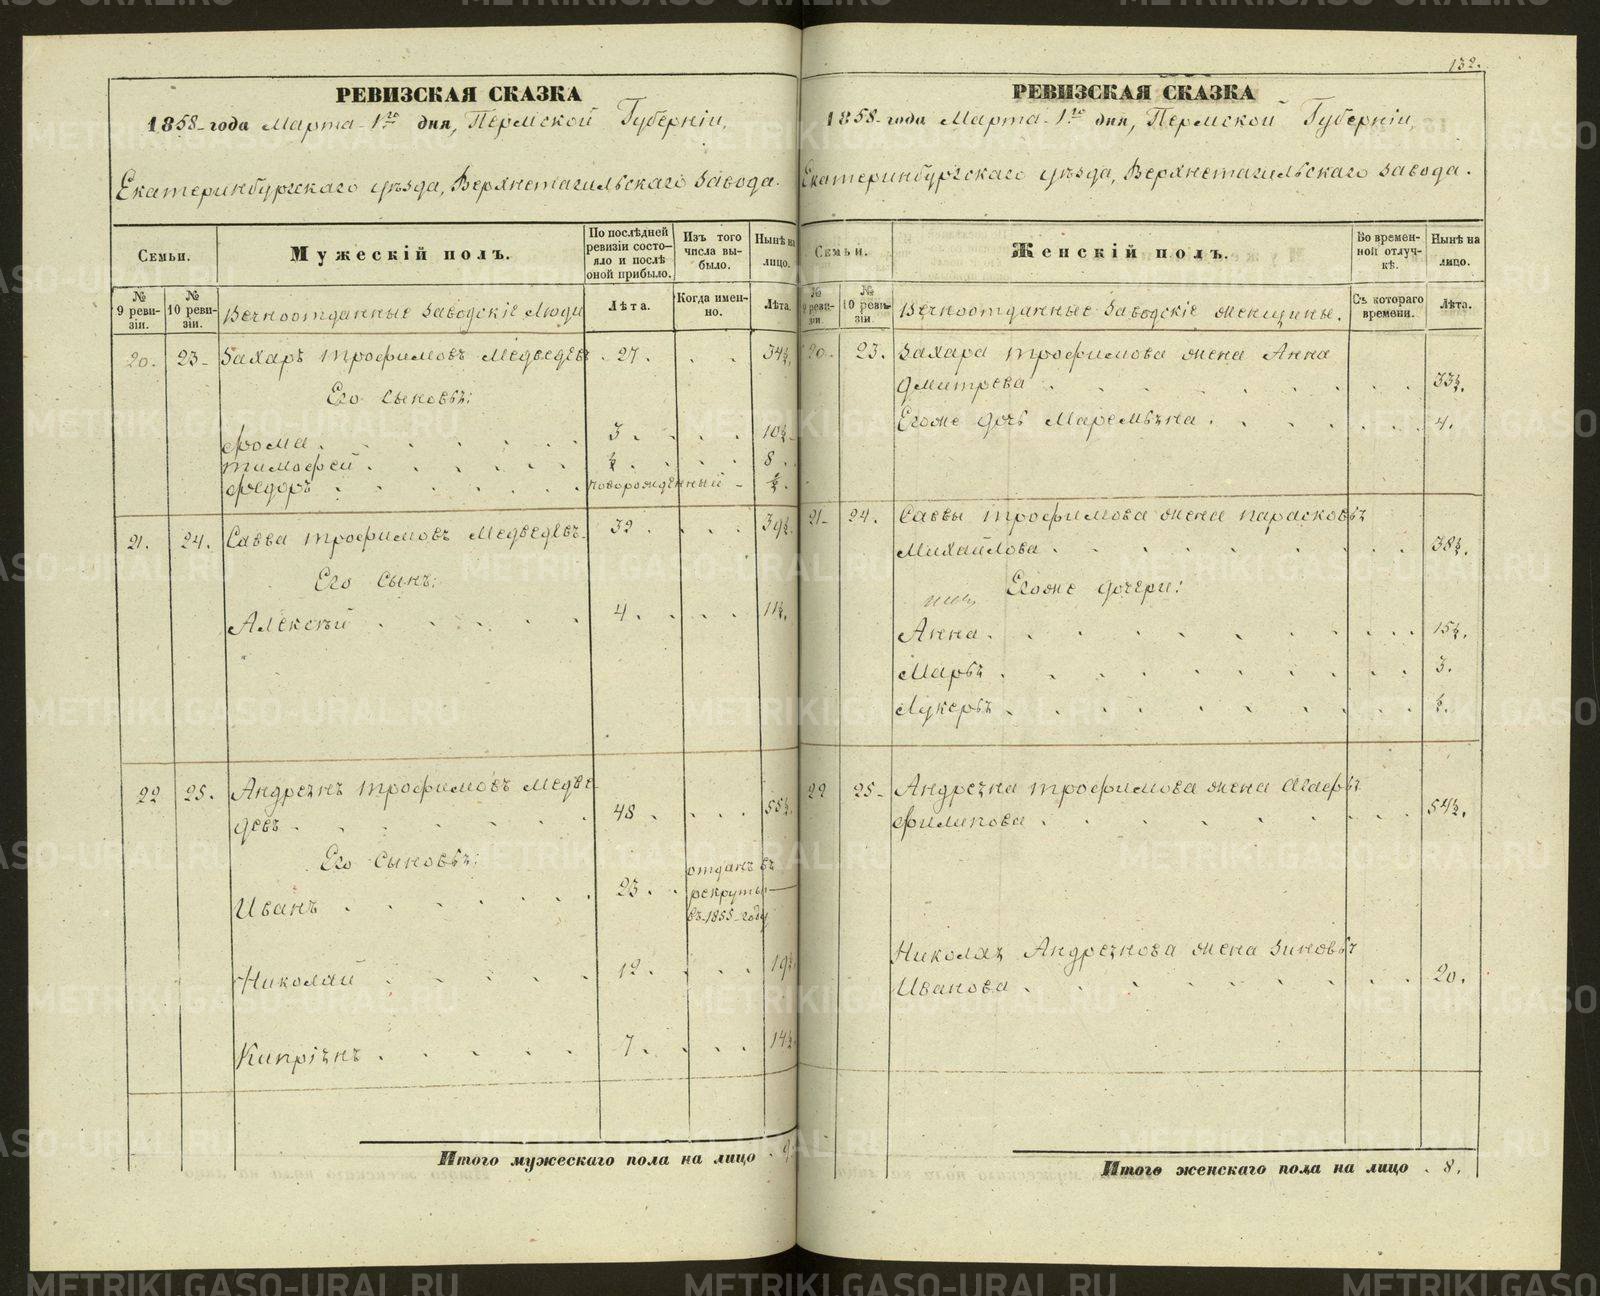 132.
РЕВИЗСКАЯ СКАЗКА
1858-года Марта 1го дня, Пермской Губерніи,
Екатеринбургскаго уѣзда, Верхнетагильскаго завода.
Семьи.
Мужескій полъ.
По послѣдней ревизіи состо-
яло и послѣ
оной прибыло.
Изъ того
числа вы-
было.
Нынѣ на
лицо.
№ 9 реви-
зіи.
№ 10 реви-
зіи.
Вечноотданные заводскіе люди
Лѣта.
Когда имен-
но.
Лѣта.
20. 23- Захаръ Трофимовъ Медведевъ 27. 34½.
Его сыновья:
Фома 3. 10½
Тимофей ½. 8.
Федоръ новорожденный - ½.
21. 24. Савва Трофимовъ Медведевъ. 32 39½.
Его сынъ:
Алексѣй 4. 11½.
22 25. Андреянъ Трофимовъ Медве-
девъ 48. 55½.
Его сыновья:
Иванъ 23. отданъ въ
рекруты
въ 1855 году
Николай 12. 19½
Кипріянъ 7. 14½
Итого мужескаго пола на лицо 9.
РЕВИЗСКАЯ СКАЗКА
1858-года Марта 1го дня, Пермской Губерніи,
Екатеринбургскаго уѣзда, Верхнетагильскаго завода.
Семьи.
Женскій полъ.
Во времен-
ной отлуч-
кѣ.
Нынѣ на
лицо.
№ 9 реви-
зіи.
№ 10 реви-
зіи.
Вечноотданные заводскіе женщины.
Съ котораго
времени.
Лѣта.
20. 23. Захара Трофимова жена Анна
Дмитрева 33½.
Егоже дочь Маремьяна 4.
21- 24. Саввы Трофимова жена Парасковья
Михайлова 38½.
Егоже дочери:
Анна 15½.
Марья 3.
Лукерья ½.
22 25- Андреяна Трофимова жена Агафья
Филипова 54½.
Николая Андреянова жена Зиновья
Иванова 20.
Итого женскаго пола на лицо 8.
METRIKI.GASO-URAL.RU